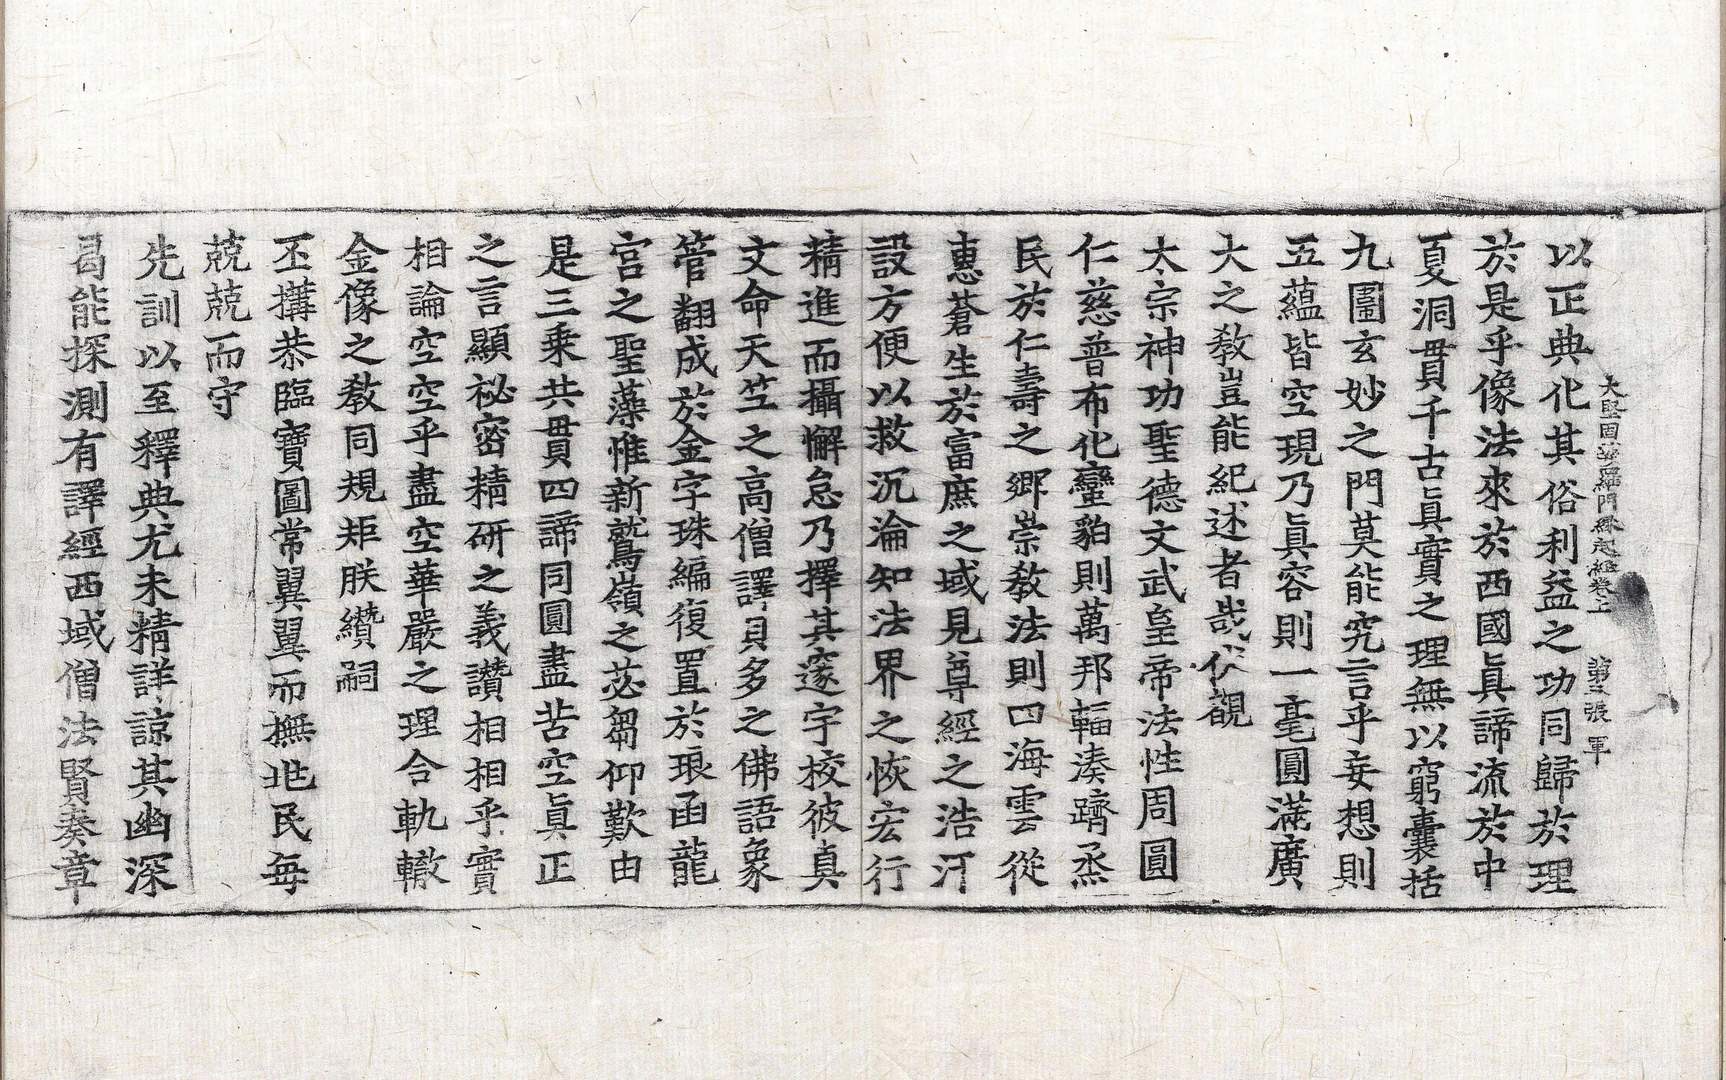 大堅固婆羅門緣起經卷上　第二張　軍
以正典化其俗利益之功同歸於理
於是乎像法來於西國眞諦流於中
夏洞貫千古眞實之理無以窮囊括
九圍玄妙之門莫能究言乎妄想則
五蘊皆空現乃眞容則一毫圓滿廣
大之教豈能紀述者哉伏覩
太宗神功聖德文武皇帝法性周圓
仁慈普布化蠻貊則萬邦輻湊躋烝
民於仁壽之鄉崇教法則四海雲從
惠蒼生於富庶之域見尊經之浩汗
設方便以救沉淪知法界之恢宏行
精進而攝懈怠乃擇其邃宇校彼真
文命天竺之高僧譯貝多之佛語象
管翻成於金字珠編復置於琅函龍
宮之聖藻惟新鷲嶺之苾芻仰歎由
是三乘共貫四諦同圓盡苦空眞正
之言顯祕密精研之義讚相相乎實
相論空空乎盡空華嚴之理合軌轍
金像之教同規矩朕纘嗣
丕搆恭臨寶圖常翼翼而撫兆民每
兢兢而守
先訓以至釋典尤未精詳諒其幽深
曷能探測有譯經西域僧法賢奏章